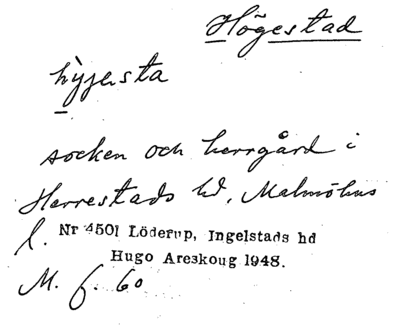 Högestad
hyjersta
socken och herrgård i
Herrestads hd, Malmöhus
l.
Nr 4501 Löderup, Ingelstads hd
Hugo Areskoug 1948.
M. f. 60